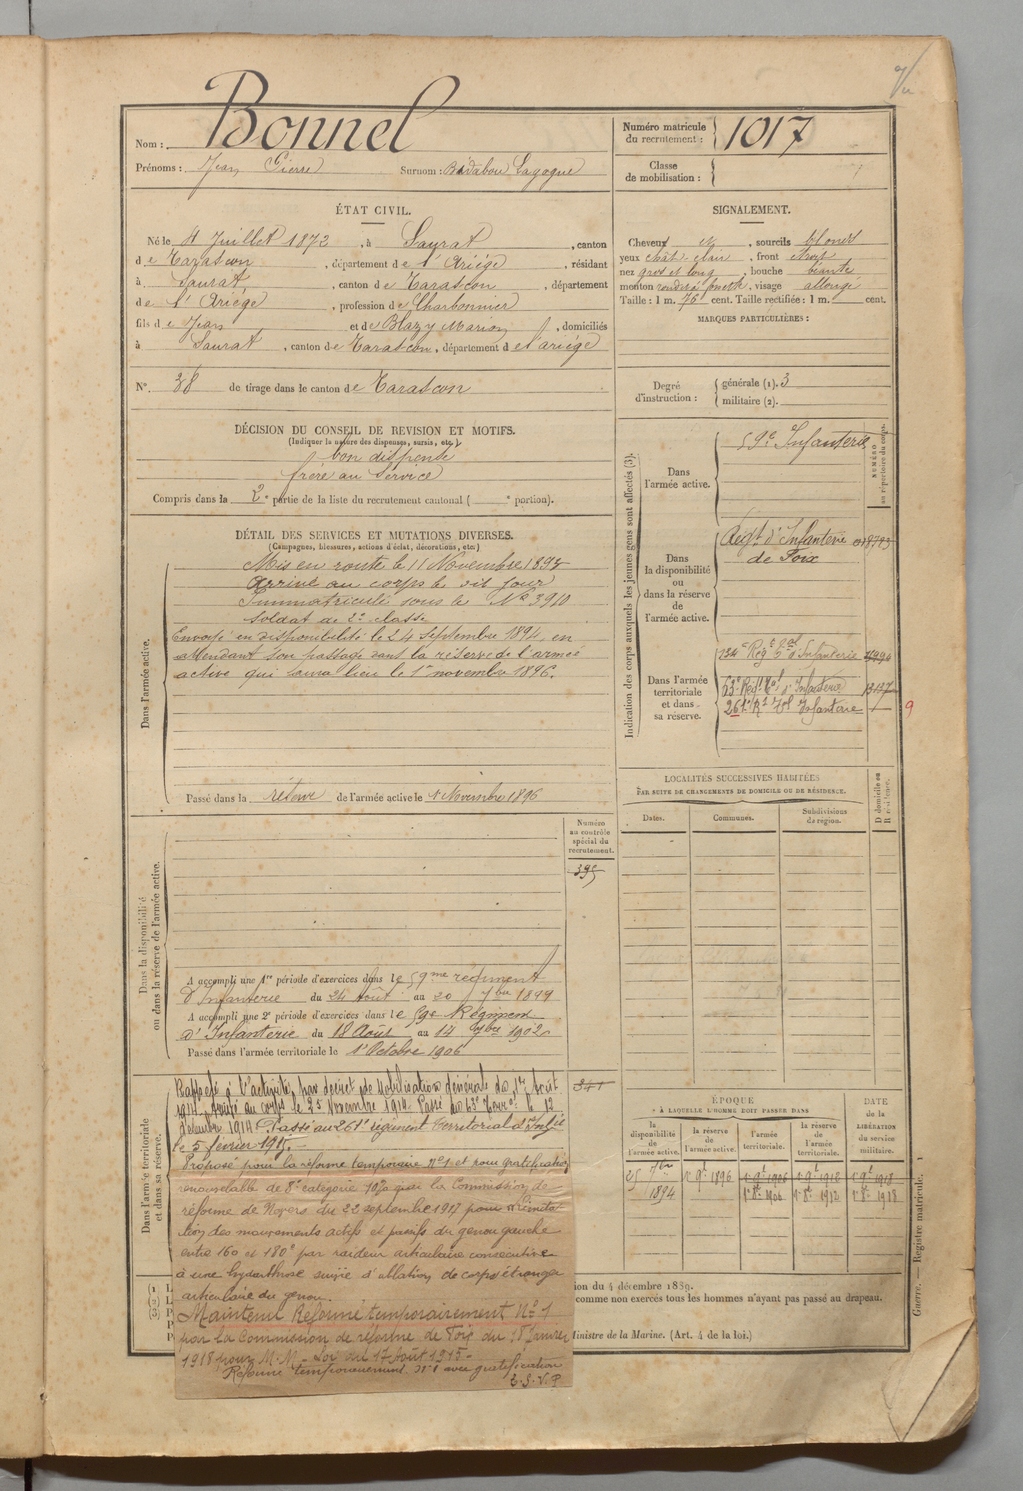 Vu
Nom : Bonnel
Prénoms : Jean Pierre Surnom : Badabou Lagogue
Numéro matricule du recrutement : 1017
Classe de mobilisation :
ÉTAT CIVIL.
Né le 4 Juillet 1872, à Saurat, canton
de Tarascon, département de l'Ariége, résidant
à Saurat, canton de Tarascon, département
de l'Ariége, profession de Charbonnier
fils de Jean et de Blazy Marion, domiciliés
à Saurat, canton de Tarascon, département de l'ariége
N° 38 de tirage dans le canton de Tarascon
SIGNALEMENT.
Cheveux et, sourcils blonds
yeux chât-clair, front étroit
nez gros et long, bouche béante
menton rond, visage allongé
Taille : 1 m. 76 cent. Taille rectifiée : 1 m. cent.
MARQUES PARTICULIÈRES :
Degré d'instruction : générale (1). 3
militaire (2).
DÉCISION DU CONSEIL DE REVISION ET MOTIFS.
(Indiquer la nature des dispenses, sursis, etc.)
bon dispensé
frère au Service
Compris dans la 2e partie de la liste du recrutement cantonal ( e portion).
DÉTAIL DES SERVICES ET MUTATIONS DIVERSES.
(Campagnes, blessures, actions d'éclat, décorations, etc.)
Dans l'armée active.
Mis en route le 11 Novembre 1893
Arrivé au corps le dit jour
Immatriculé sous le No 3910
Soldat de 2e classe
Envoyé en disponibilité le 24 Septembre 1894, en
attendant son passage dans la réserve de l'armée
active qui aura lieu le 1er novembre 1896.
Passé dans la réserve de l'armée active le 1 Novembre 1896
Indication des corps auxquels les jeunes gens sont affectés (3).
NUMÉRO au répertoire du corps.
Dans l'armée active.
59e Infanterie
Dans la disponibilité ou dans la réserve de l'armée active.
Régt d'Infanterie
de Foix
Dans l'armée territoriale et dans sa réserve.
134e Régt tal d'Infanterie
63e Régt tal d'Infanterie
261e Rt Tal Infanterie
9
LOCALITÉS SUCCESSIVES HABITÉES
PAR SUITE DE CHANGEMENTS DE DOMICILE OU DE RÉSIDENCE.
Dates. Communes. Subdivisions de région. D domicile ou R résidence.
Numéro au contrôle spécial du recrutement.
395
Dans la disponibilité ou dans la réserve de l'armée active.
A accompli une 1re période d'exercices dans le 59me régiment
D'Infanterie du 24 Août au 20 7bre 1899
A accompli une 2e période d'exercices dans le 59e Régiment
d'Infanterie du 18 Août au 14 7bre 1902
Passé dans l'armée territoriale le 1er Octobre 1906
341
Dans l'armée territoriale et dans sa réserve.
Rappelé à l'activité par décret de Mobilisation générale du 1er Août
1914. Arrivé au corps le 25 Novembre 1914. Passé au 63e Terral le 12
décembre 1914. Passé au 261e régiment territorial d'Inftie
le 5 février 1915.
Proposé pour la réforme temporaire No 1 et pour gratification
renouvelable de 8e catégorie 10% par la Commission de
réforme de Nevers du 22 septembre 1917 pour limita-
tion des mouvements actifs et passifs du genou gauche
entre 160 et 180° par raideur articulaire consécutive
à une hydarthrose suivie d'ablation de corps étranger
articulaire du genou.
Maintenu Réformé temporairement No 1
par la Commission de réforme de Foix du 18 Janvier
1918, pour M.M - Loi du 17 Août 1915 -
Réformé temporairement no 1 avec gratification
T.S.V.P
ÉPOQUE
À LAQUELLE L'HOMME DOIT PASSER DANS
la disponibilité de l'armée active. la réserve de l'armée active. l'armée territoriale. la réserve de l'armée territoriale.
DATE de la LIBÉRATION du service militaire.
25 7bre 1894 1er 9bre 1896 1er 9bre 1906 1er 9bre 1912 1er 9bre 1918
1er 8bre 1906 1er 8bre 1912 1er 8bre 1918
ion du 4 décembre 1889.
comme non exercés tous les hommes n'ayant pas passé au drapeau.
Ministre de la Marine. (Art. 4 de la loi.)
Guerre. — Registre matricule. 1